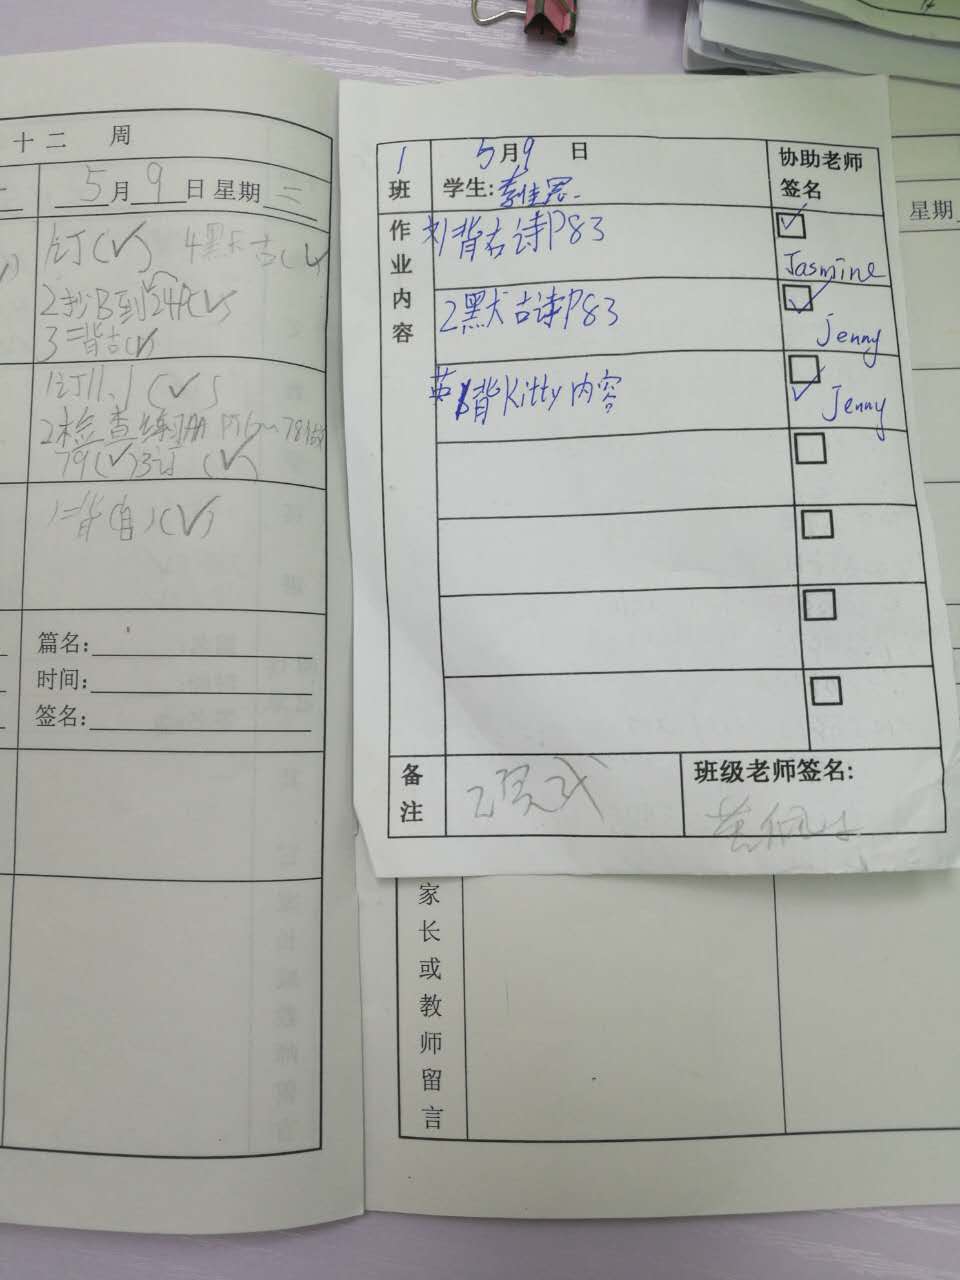 十二 周
5月9日 星期二
1订(✓) 4默古(✓
2抄B到24A(✓)
3背古(✓)
1订11.1(✓)
2检查练习册
79(✓)3订(✓)
1背(自)(✓)
篇名:
时间:
签名:
1班
5月9日
学生:
协助老师签名
作业内容
背古诗P83
Jasmine
2默古诗P83
Jenny
英 1背Kitty内容
Jenny
备注
班级老师签名:
家长或教师留言
星期